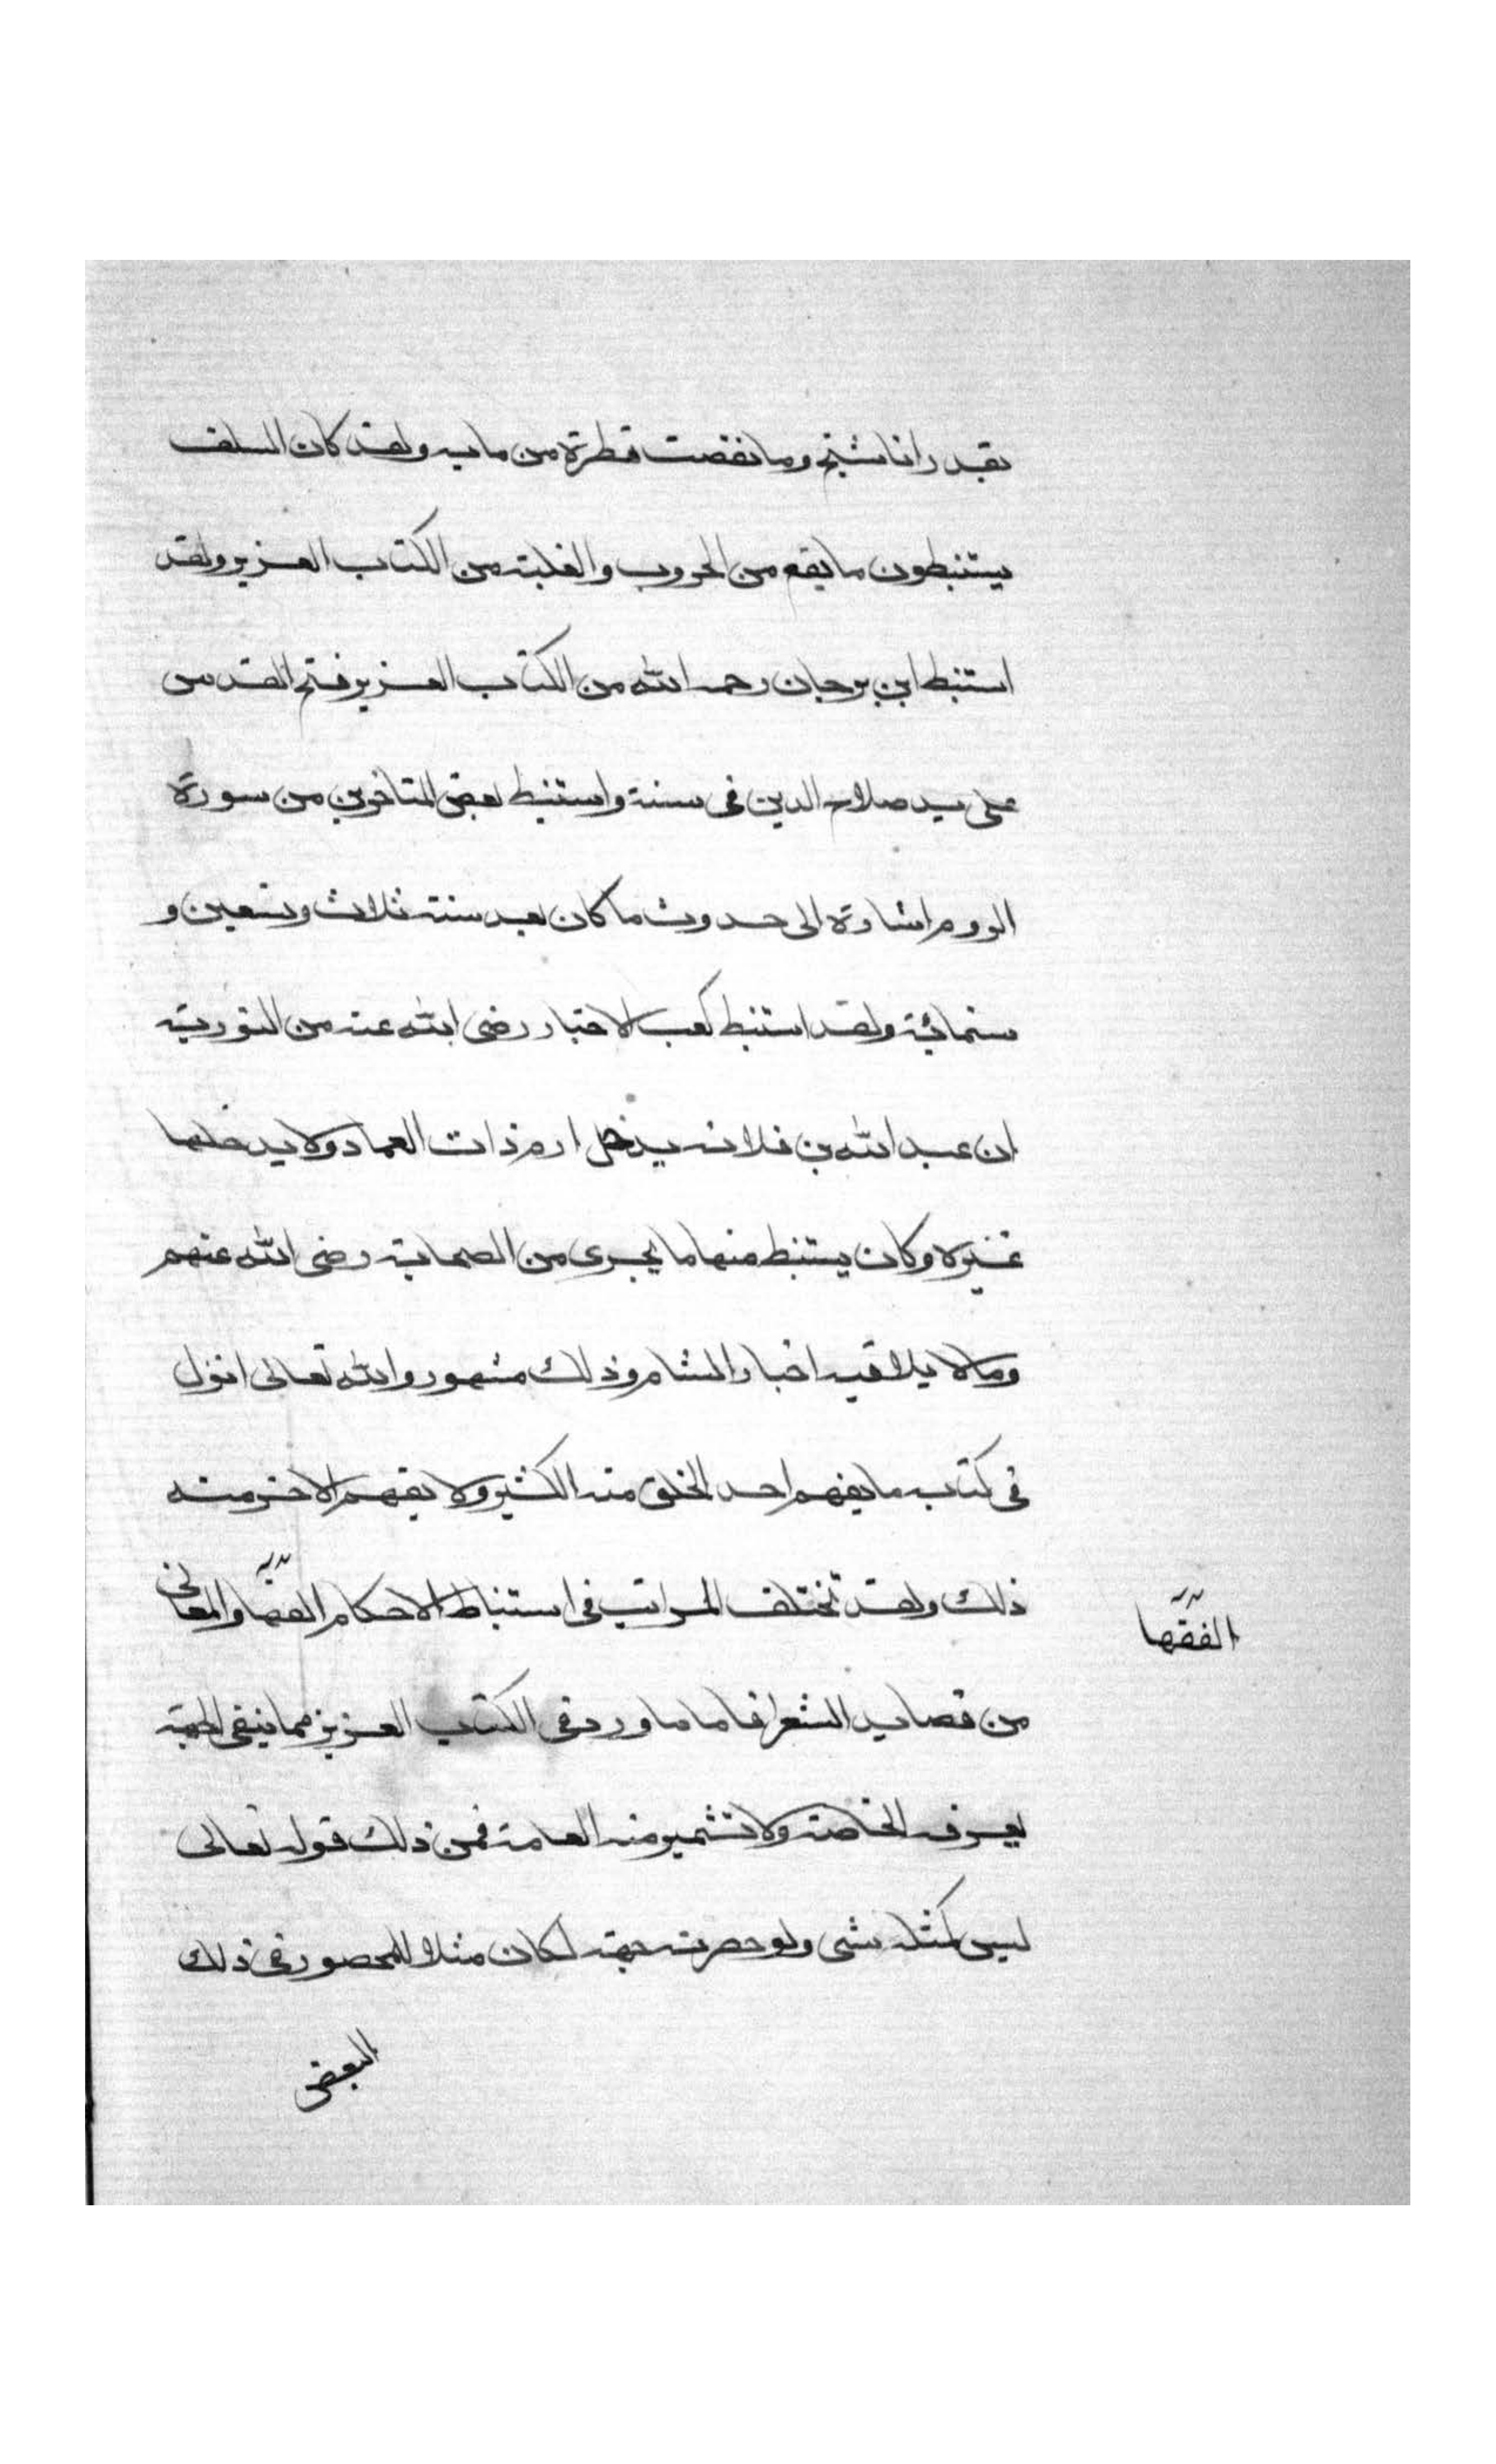 بقدر انا شيخ وما نقصت قطرة من مايه ولقد كان السلف
يستنبطون ما يقع من الحروب والغلبة من الكتاب العزيز ولقد
استنبط ابن برجان رحمه الله من الكتاب العزيز فتح القدس
على يد صلاح الدين في سنته واستنبط بعض المتاخرين من سورة
الروم اشارة الى حدوث ما كان بعد سنة ثلاث وتسعين و
ستمائة ولقد استنبط كعب الاحبار رضى الله عنه من التورية
ان عبد الله بن فلانه يدخل ارم ذات العماد ولا يدخلها
غيره وكان يستنبط منها ما يجرى من الصحابة رضى الله عنهم
وما لا يلاقيه اخبار الشام وذلك مشهور والله تعالى انزل
فى كتابه ما يفهم احد الخلق منه الكثير ولا يفهم الاخر منه
ذلك ولقد تختلف المراتب فى استنباط الاحكام الفقها والمعانى
الفقها
من قصايد الشعرا فاما ما ورد فى الكتاب العزيز مما ينفى الجهة
يعرفه الخاصة ولا تشمير منه العامة فمن ذلك قوله تعالى
ليس كمثله شى ولو حصرته جهة لكان مثلا للمحصور فى ذلك
البعض